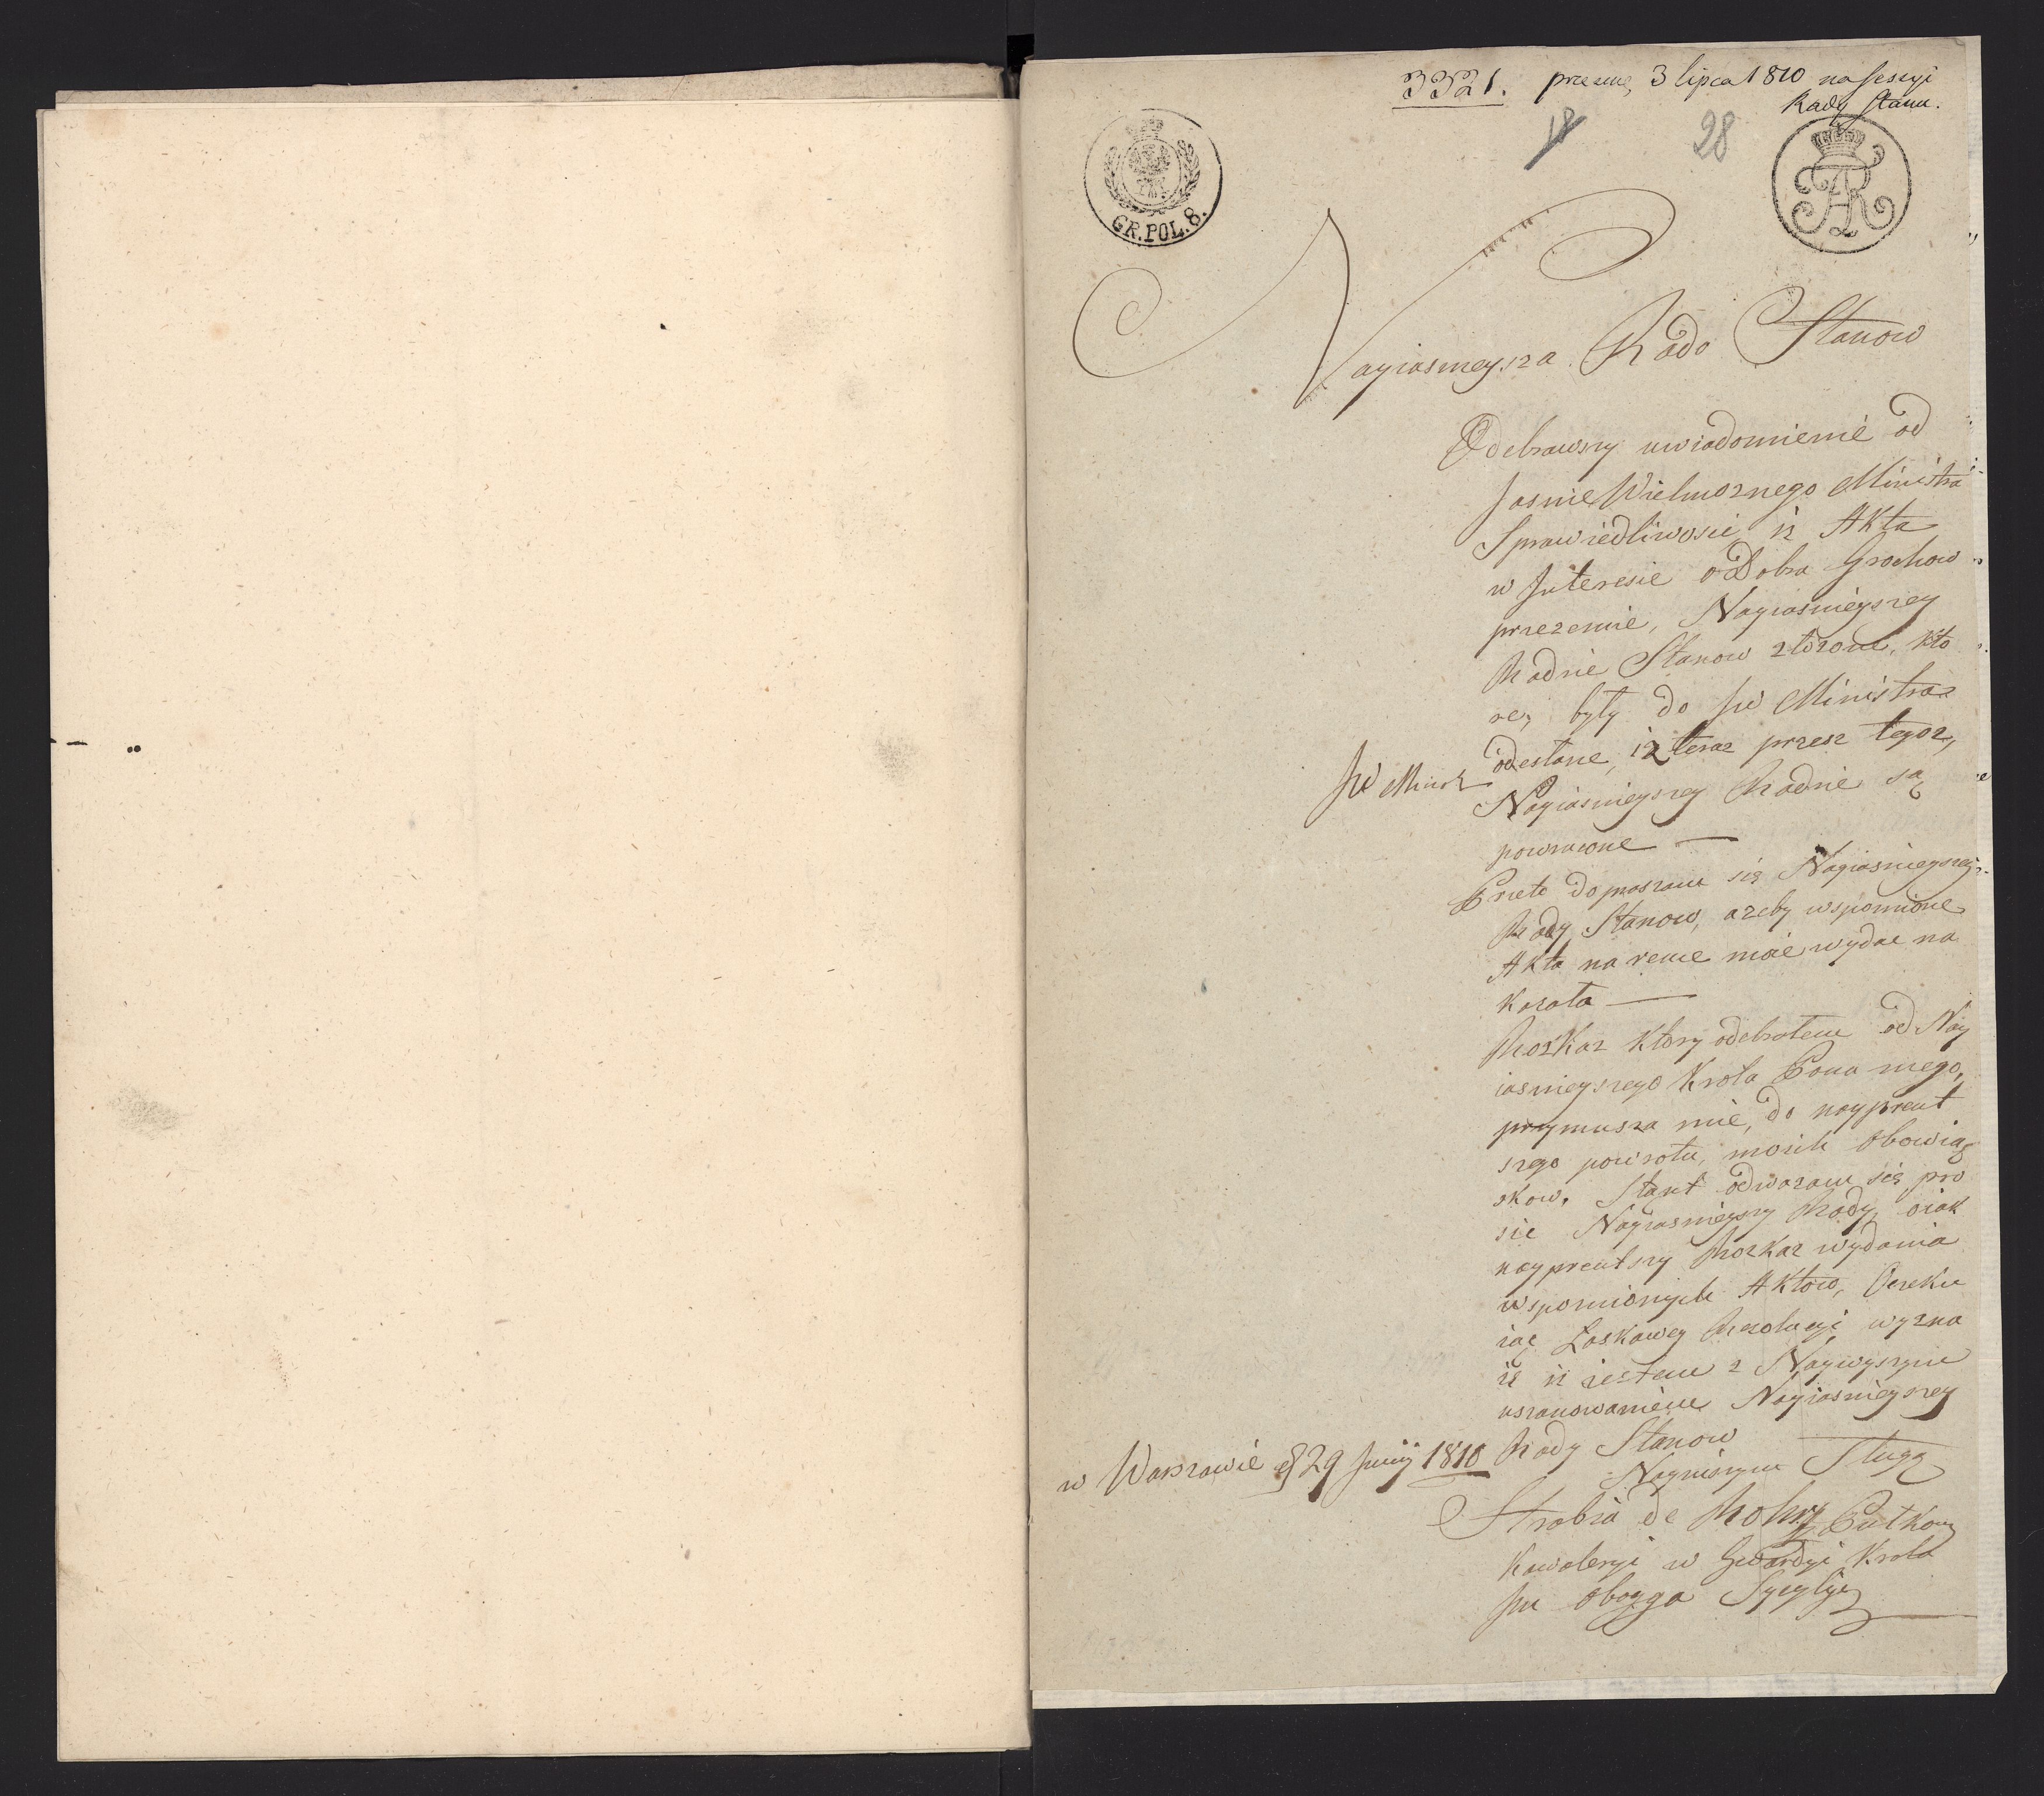 3321. 3 lipca 1810 na sessyi
Rady Stanu.
18 28
GR. POL. 8.
Nayiasnieysza Rado Stanow
Odebrawszy uwiadomienie od
Jasnie Wielmoznego Ministra
Sprawiedliwosci iz Akta
w Interesie o Dobra Grochow
przezemie, Nayiasnieyszey
Radzie Stanow złozone, kto
re, były do JW Ministra
odesłane, iz teraz przesz tegoz,
JW Minist
Nayiasnieyszey Radzie są
powrucone —
Przeto dopraszam się Nayiasnieyszey
Rady Stanow, azeby wspomnione
Akta na rence moie wydac na
kazała —
Rozkaz ktory odebrałem od Nay
iasnieyszego Krola Pana mego,
przymusza mie, do nayprent
szego powrotu, moich obowiąz
skow. Stant odwazam się pro
sic Nayiasnieyszy Rady, oiak
nayprentszy Rozkaz wydania
wspomnionych Aktow, Oczeku
iąc Łaskawey Rezolucyi, wyzna
ię iz iestem z Naywyszym
uszanowaniem Nayiasnieyszey
Rady Stanow
w Warszawie d 29 Junij 1810
Nayniszym Sługą
Hrabia de Pułkow
Kawaleryi w Gwardyi Krola
Jm oboyga Sycylyi